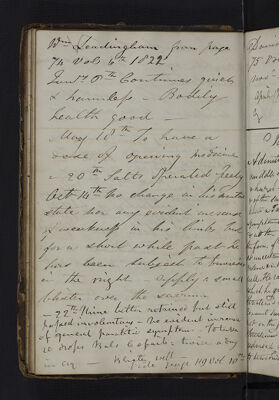 Wm Leadingham from page
74 Vol 6th 1822
Jany 8th Continues quiet
& harmless - Bodily
health good -
Aug 18th To have a
dose of opening medicine
- 20th Salts operated freely
Octr 14th No change in his mental
state nor any evident increase
of weakness in his limbs but
for a short while past he
has been subject to
in the night Apply a small
blister over the sacrum
- 22nd Urine better retained but still
passed involuntary - No evident increase
of general paralytic symptoms - To have
20 drops Bals Copaib: twice a day
in Blister well
Vide page 119 Vol 10th